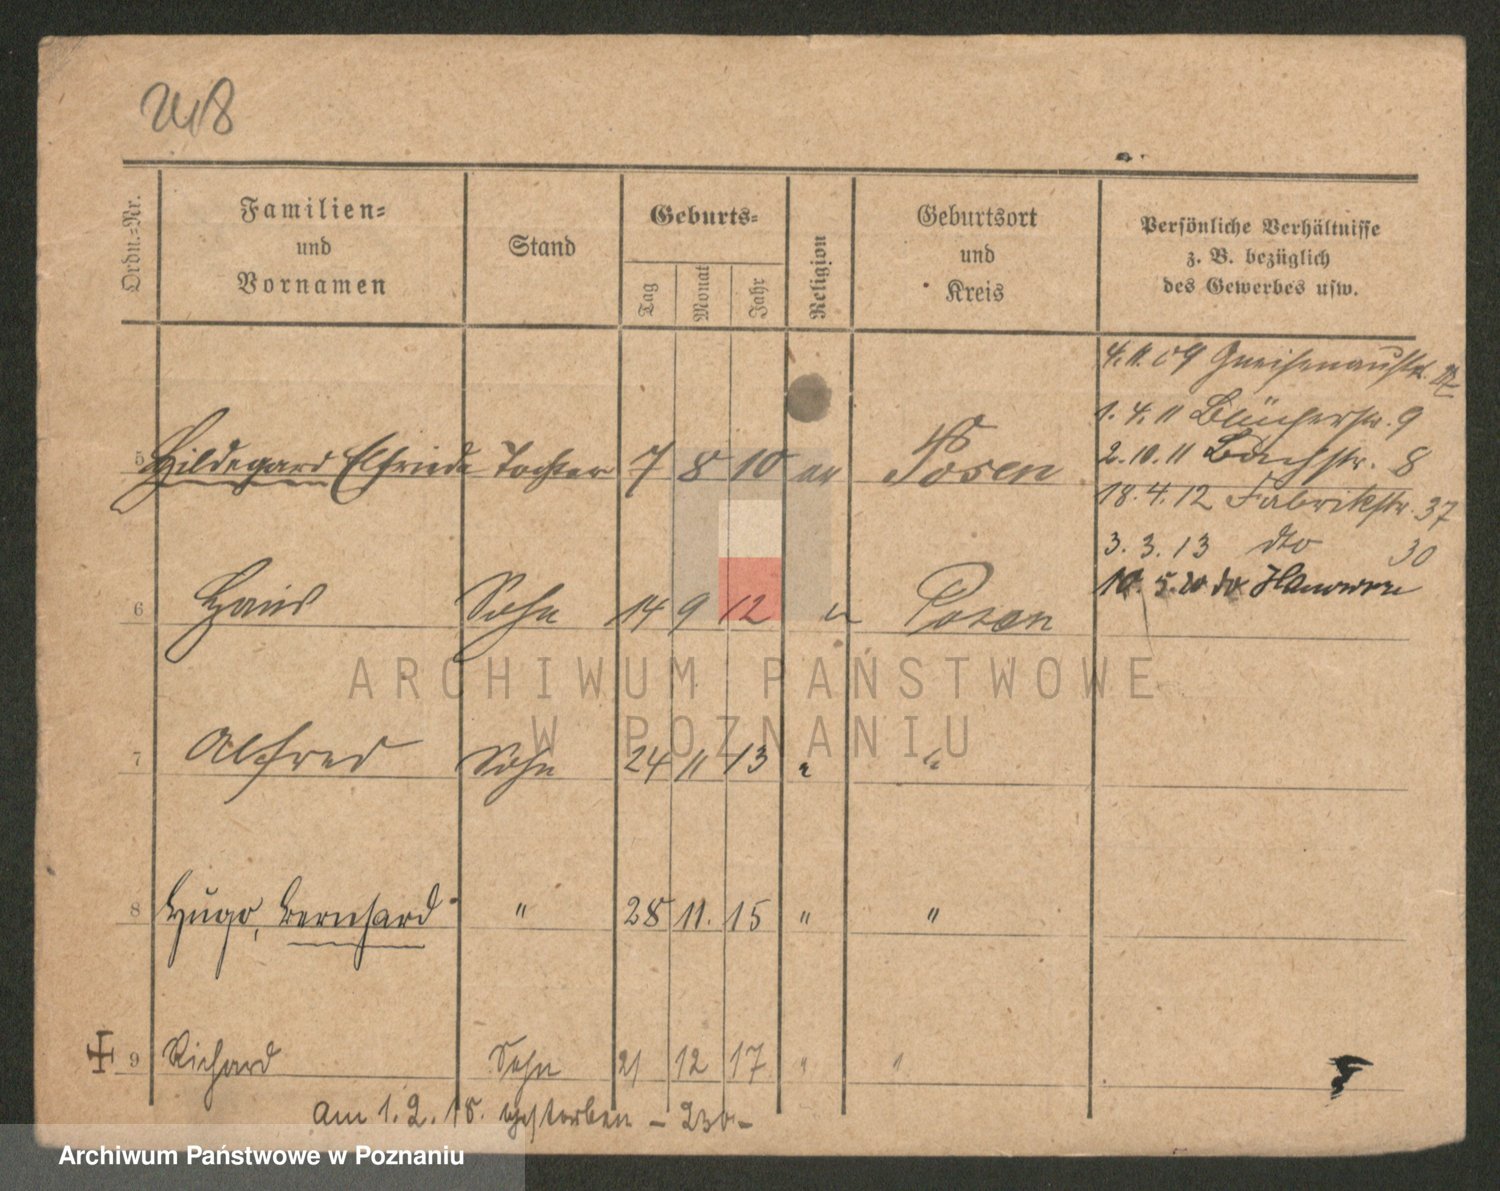 Ordn.-Nr.
Familien-
und
Vornamen
Stand
Geburts-
Tag
Monat
Jahr
Religion
Geburtsort
und
Kreis
Persönliche Verhältnisse
z. B. bezüglich
des Gewerbes usw.
4.11.09 Gneisenaustr.
1.4.11 Blücherstr. 9
2.10.11 Bachstr. 8
18.4.12 Fabrikstr. 37
3.3.13 dto 30
10.5.20 Hannover
5 Hildegard Elfriede Tochter 7 8 10 ev Posen
6 Hans Sohn 14 9 12 " Posen
7 Alfred Sohn 24 11 13 " "
8 Hugo, Bernhard " 28 11. 15 " "
9 Richard Sohn 21 12 17 " "
am 1.2.18. gestorben
ARCHIWUM PAŃSTWOWE
W POZNANIU
Archiwum Państwowe w Poznaniu